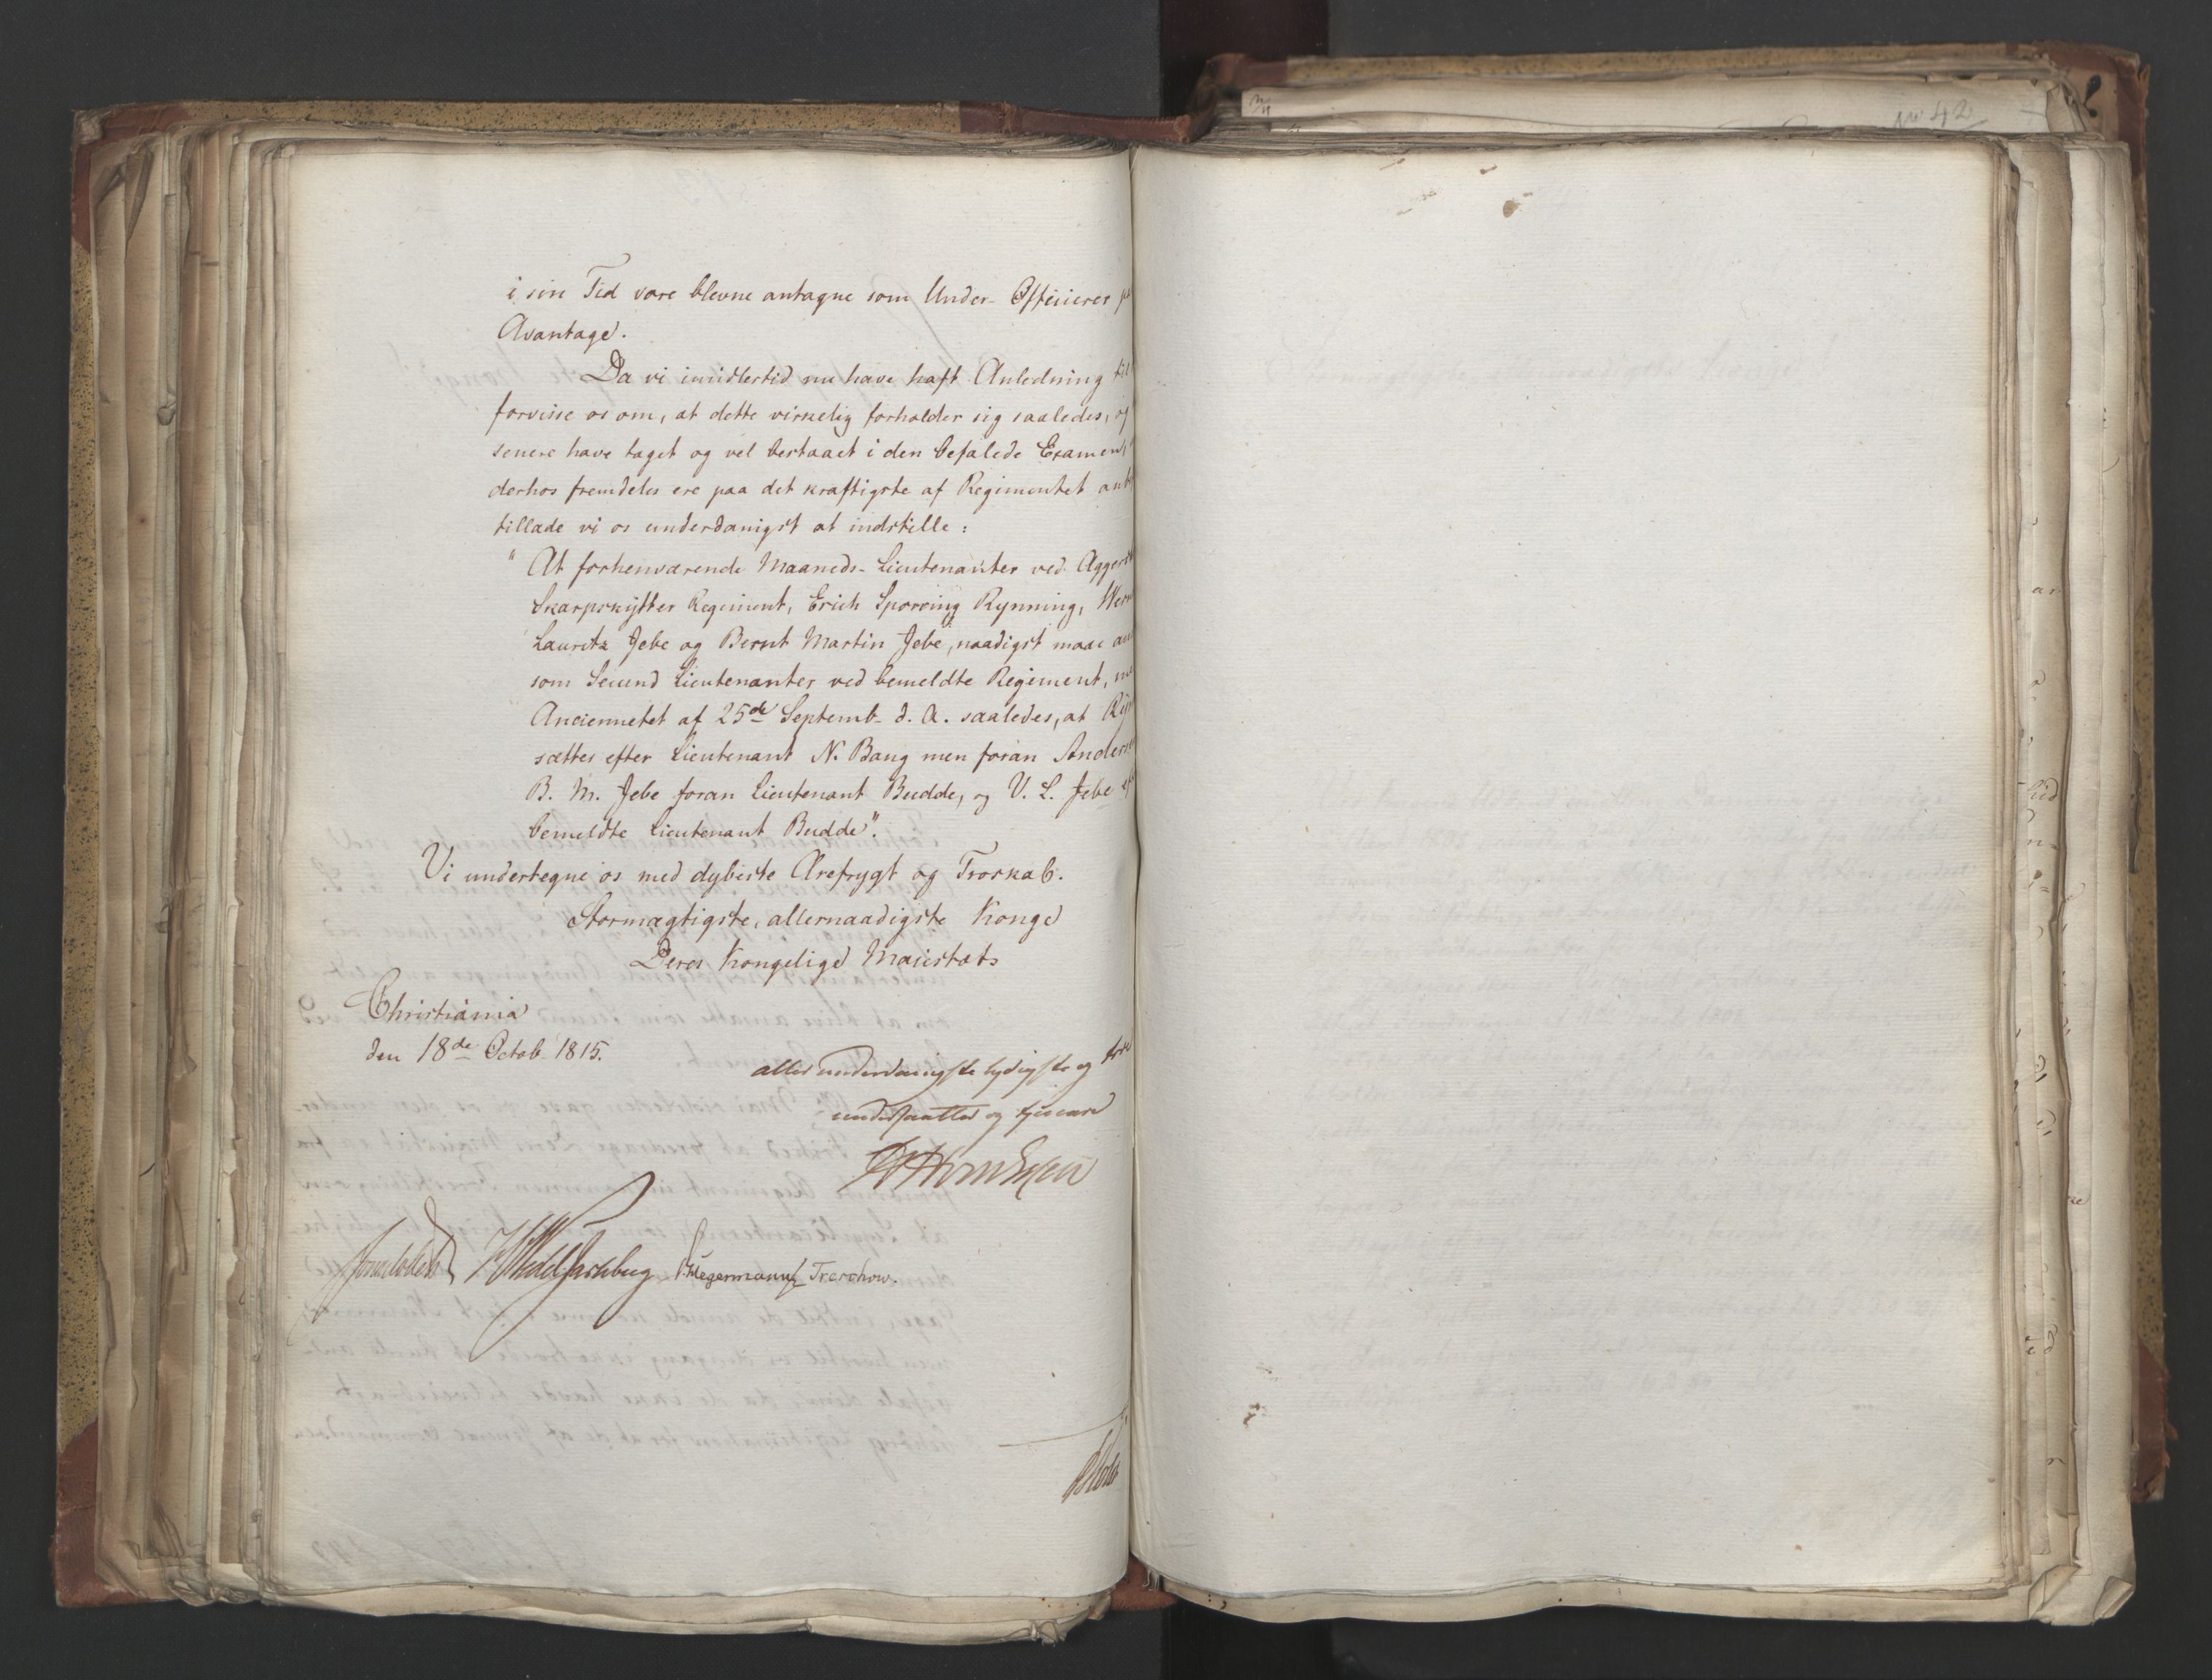 No 42
i sin Tid vare blevne antagne som Under-Officierer
Avantage.
Da vi imidlertid nu have haft Anledning til
forvisse os om, at dette virkelig forholder sig saaledes, og
senere have taget og vel bestaaet i den befalede Examen,
derhos fremdeles ere paa det kraftigste af Regimentet anb
tillade vi os underdanigst at indstille:
"At forhenværende Maaneds-Lieutenanter ved Aggers
Skarpskytter Regiment, Erich Sporring Rynning, Wern
Lauritz Jebe og Bernt Martin Jebe, naadigst maae an
som Secund Lieutenanter ved bemeldte Regiment, me
Anciennetet af 25de Septemb. d. A. saaledes, at Ryn
sættes efter Lieutenant N. Bang men foran Anders
B. M. Jebe foran Lieutenant Budde, og V. L. Jebe ef
bemeldte Lieutenant Budde".
Vi undertegne os med dybeste Ærefrygt og Troskab.
Stormægtigste, allernaadigste Konge
Deres Kongelige Majestæts
Christiania
den 18de Octob. 1815.
allerunderdanigste lydigste og troe
undersaatter og tienere
Hegermann Treschow.